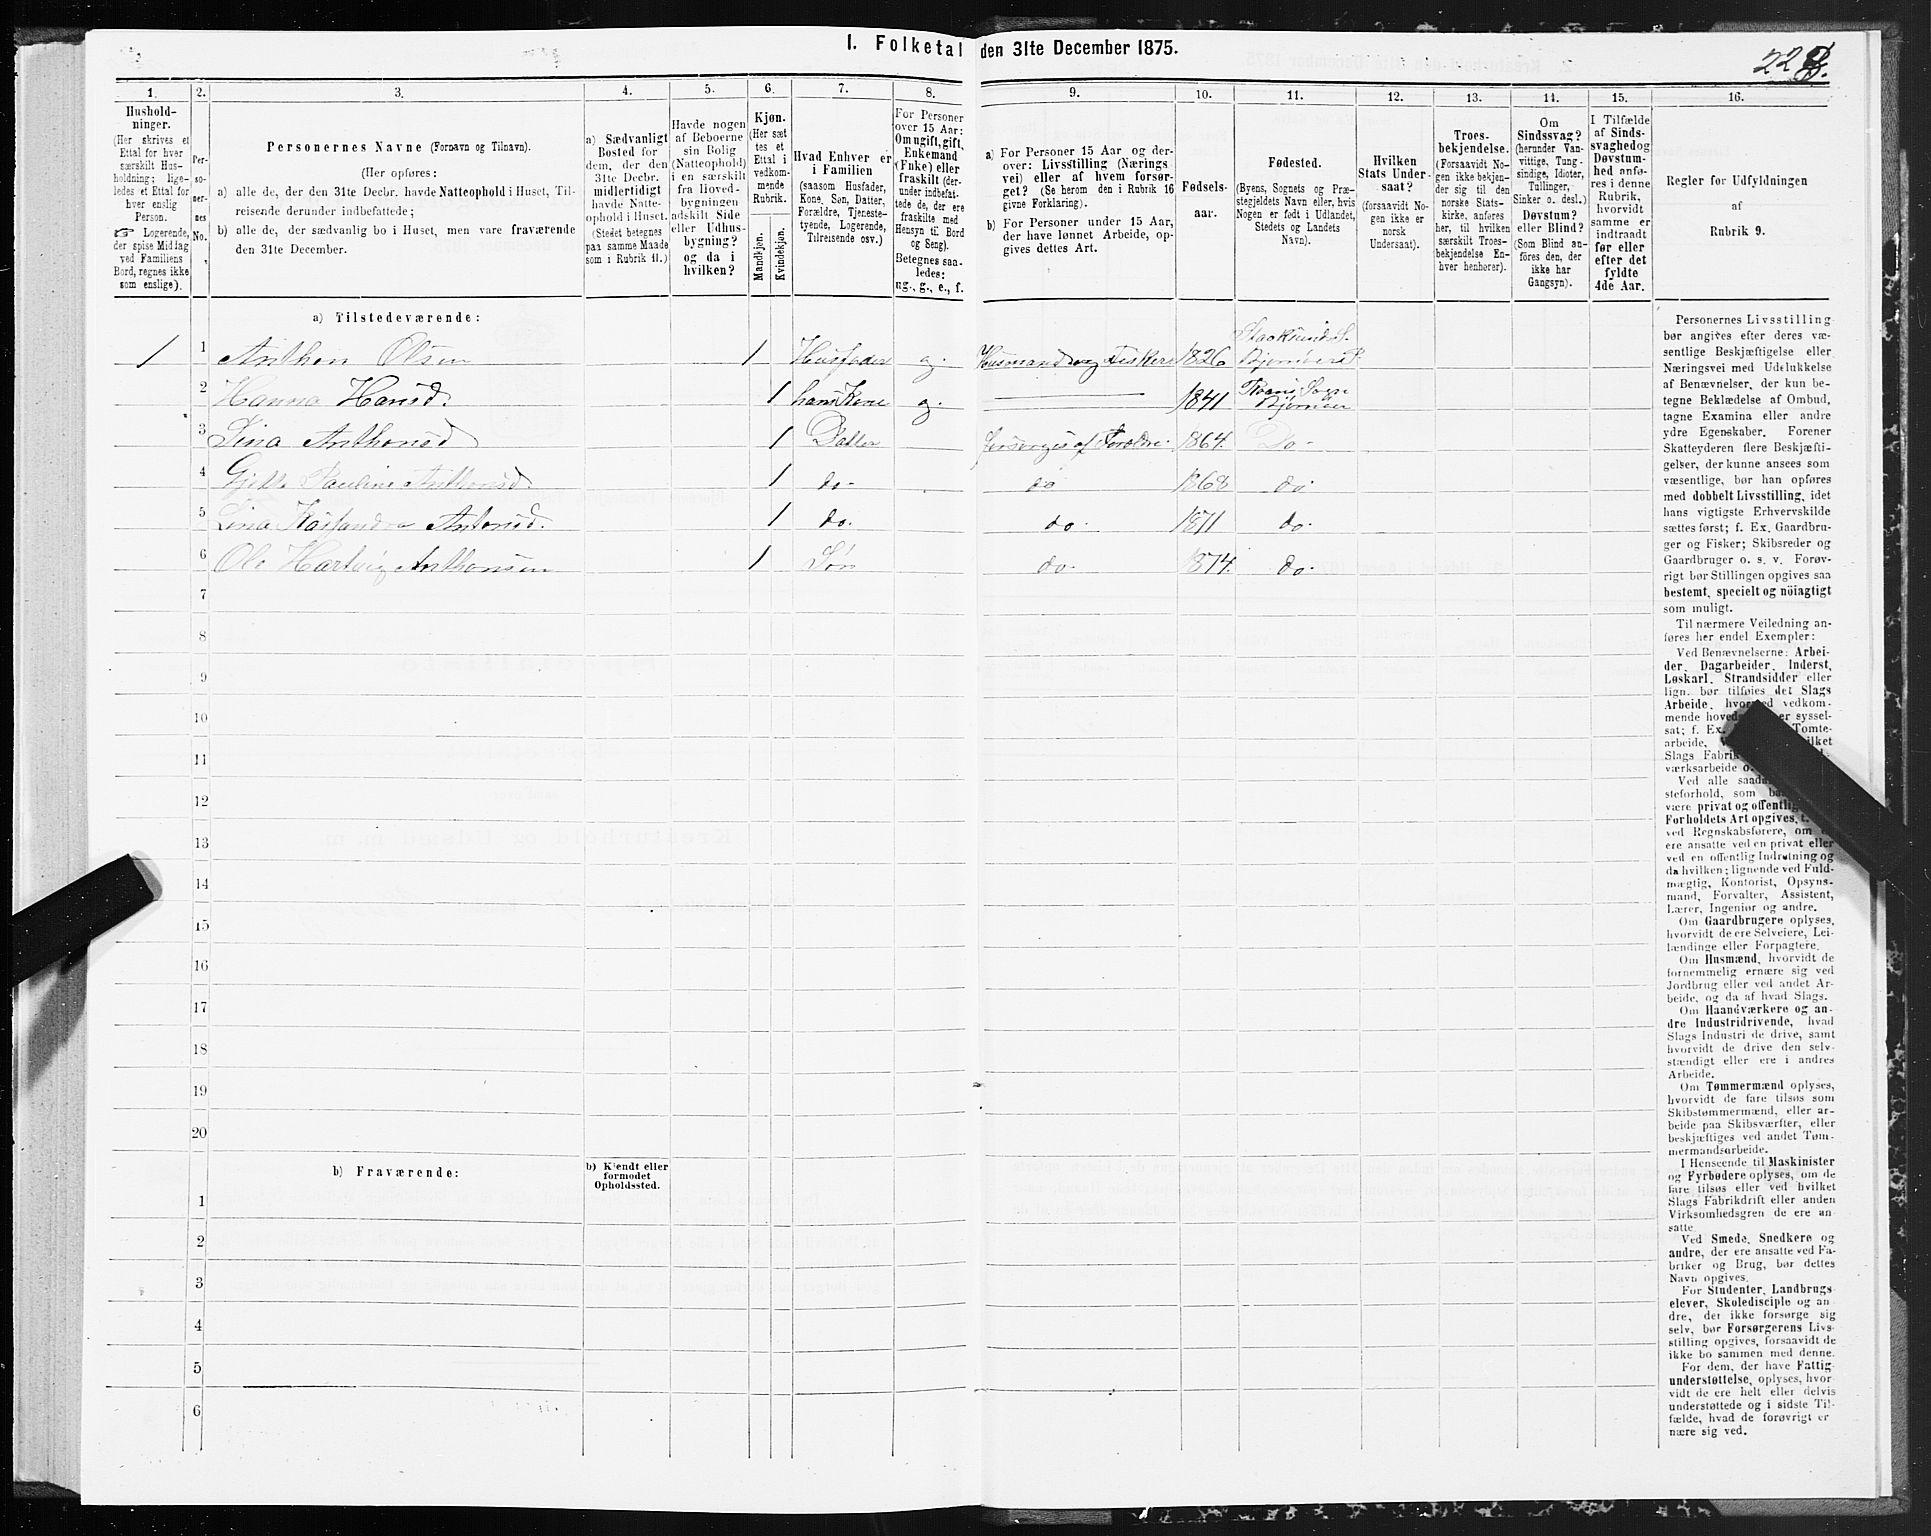 I. Folketal den 31te December 1875.
228.
1. 2. 3. 4. 5. 6. 7. 8. 9. 10. 11. 12. 13. 14. 15. 16.
Hushold-
ninger.
(Her skrives et
Ettal for hver
særskilt Hus-
holdning; lige-
ledes et Ettal for
hver enslig
Person.
☞ Logerende,
der spise Middag
ved Familiens
Bord, regnes ikke
som enslige).
Per-
so-
ner-
nes
No.
Personernes Navne (Fornavn og Tilnavn).
(Her opføres:
a) alle de, der den 31te Decbr. havde Natteophold i Huset, Til-
reisende derunder indbefattede;
b) alle de, der sædvanlig bo i Huset, men vare fraværende
den 31te December.
a) Sædvanligt
Bosted for
dem, der den
31te Decbr.
midlertidigt
havde Natte-
ophold i Huset.
(Stedet betegnes
paa samme Maade
som i Rubrik 11.)
Havde nogen
af Beboerne
sin Bolig
(Natteophold)
i en særskilt
fra Hoved-
bygningen
adskilt Side
eller Udhus-
bygning?
og da i
hvilken?
Kjøn.
(Her sæt
tes et
Ettal i
vedkom-
mende
Rubrik.
Mandkjøn.
Kvindekjøn.
Hvad Enhver er
i Familien
(saasom Husfader,
Kone, Søn, Datter,
Forældre, Tjeneste-
tyende, Logerende,
Tilreisende osv.)
For Personer
over 15 Aar:
Om ugift, gift,
Enkemand
(Enke) eller
fraskilt (der-
under indbefat-
tede de, der ere
fraskilte med
Hensyn til Bord
og Seng).
Betegnes saa-
ledes:
ug., g., e., f.
a) For Personer 15 Aar og der-
over: Livsstilling (Nærings
vei) eller af hvem forsør-
get? (Se herom den i Rubrik 16
givne Forklaring).
b) For Personer under 15 Aar,
der have lønnet Arbeide, op-
gives dettes Art.
Fødsels-
aar.
Fødested.
(Byens, Sognets og Præ-
stegjeldets Navn eller, hvis
Nogen er født i Udlandet,
Stedets og Landets
Navn).
Hvilken
Stats Under-
saat?
(forsaavidt No-
gen ikke er
norsk
Undersaat).
Troes-
bekjendelse.
(Forsaavidt No-
gen ikke bekjen-
der sig til den
norske Stats-
kirke, anføres
her, til hvilken
særskilt Troes-
bekjendelse En-
hver henhører).
Om
Sindssvag?
(herunder Van-
vittige, Tung-
sindige, Idioter,
Tullinger,
Sinker o. desl.)
Døvstum?
eller Blind?
(Som Blind an-
føres den, der
ikke har
Gangsyn).
I Tilfælde
af Sinds-
svaghed og
Døvstum-
hed anfø-
res i denne
Rubrik,
hvorvidt
samme er
indtraadt
før eller
efter det
fyldte
4de Aar.
Regler for Udfyldningen
af
Rubrik 9.
a) Tilstedeværende:
1 1 Anthon Olsen 1 Husfader g. Husmand og Fisker 1826
2 Hanna Hansd. 1 hans Kone g. 1841
3 Lina Anthonsd 1 Datter forsørges af Forældre 1864. Do
4 Pauline Anthonsd. 1 do. do 1868 do
5 Antonsd. 1 do. do. 1871 do.
6 Ole Hartvig Anthonsen 1 Søn do. 1874. do.
7
8
9
10
11
12
13
14
15
16
17
18
19
20
b) Fraværende:
b) Kjendt eller
formodet
Opholdssted.
1
2
3
4
5
6
Personernes Livsstilling
bør angives efter deres væ-
sentlige Beskjæftigelse eller
Næringsvei med Udelukkelse
af Benævnelser, der kun be-
tegne Beklædelse af Ombud,
tagne Examina eller andre
ydre Egenskaber. Forener
Skatteyderen flere Beskjæfti-
gelser, der kunne ansees som
væsentlige, bør han opføres
med dobbelt Livsstilling, idet
hans vigtigste Erhvervskilde
sættes først; f. Ex. Gaardbru-
ger og Fisker; Skibsreder og
Gaardbruger o. s. v. Forøv-
rigt bør Stillingen opgives saa
bestemt, specielt og nöiagtigt
som muligt.
Til nærmere Veiledning an-
føres her endel Exempler:
Ved Benævnelserne: Arbei-
der, Dagarbeider, Inderst,
Løskarl, Strandsidder eller
lign. bør tilføies det Slags
Arbeide, vedkom-
mende syssel-
sat; f. Ex. Tomte-
arbeide,
Slags
værksarbeide
Ved alle
steforhold, som
være privat og offentlig
Forholdets Art opgives,
ved Regnskabsførere, om
ere ansatte ved en privat eller
ved en offentlig Indretning og
da hvilken; lignende ved Fuld-
mægtig, Kontorist, Opsyns-
mand, Forvalter, Assistent,
Lærer, Ingeniør og andre.
Om Gaardbrugere oplyses,
hvorvidt de ere Selveiere, Lei-
lændinge eller Forpagtere.
Om Husmænd, hvorvidt de
fornemmelig ernære sig ved
Jordbrug eller ved andet Ar-
beide, og da af hvad Slags.
Om Haandværkere og an-
dre Industridrivende, hvad
Slags Industri de drive, samt
hvorvidt de drive den selv-
stændigt eller ere i andres
Arbeide.
Om Tømmermænd oplyses,
hvorvidt de fare tilsøs som
Skibstømmermænd, eller ar-
beide paa Skibsværfter, eller
beskjæftiges ved andet Tøm-
mermandsarbeide.
I Henseende til Maskinister
og Fyrbødere oplyses, om de
fare tilsøs eller ved hvilket
Slags Fabrikdrift eller anden
Virksomhedsgren de ere an-
satte.
Ved Smede, Snedkere og
andre, der ere ansatte ved Fa-
briker og Brug, bør dettes
Navn opgives.
For Studenter, Landbrugs-
elever, Skoledisciple og an
dre, der ikke forsørge sig
selv, bør Forsørgerens Livs-
stilling opgives, forsaavidt de
ikke bo sammen med denne.
For dem, der have Fattig-
understøttelse, oplyses, hvor-
vidt de ere helt eller delvis
understøttede og i sidste Til-
fælde, hvad de forøvrigt er
nære sig ved.